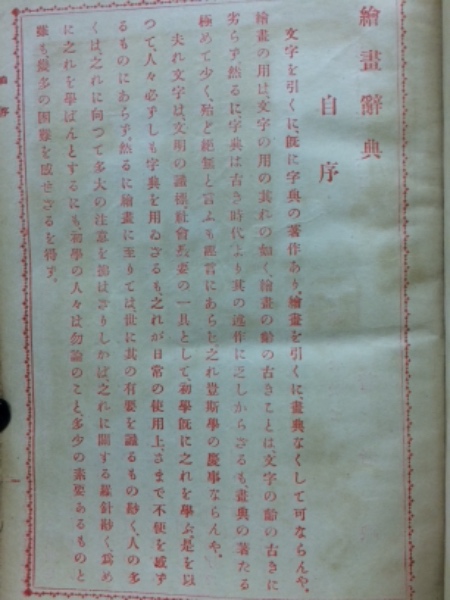 繪畫辭典
自序
文字を引くに、既に字典の著作あり、繪畫を引くに、畫典なくして可ならんや。
繪畫の用は文字の用の其れの如く、繪畫の齡の古きことは、文字の齡の古きに
劣らず、然るに、字典は古き時代より其の述作に乏しからざるも、畫典の著たる
極めて少く、殆ど絕無と言ふも、誣言にあらじ之れ豈斯學の慶事ならんや。
夫れ文字は、文明の諸標、社會必要の一具として、初學旣に之れを學ぶ、是を以
つて、人々必ずしも字典を用ゐざるも、之れが日常の使用上、さまで不便を感ず
るものにあらず然るに繪畫に至りては、世に其の有要を識るもの尠く、人の多
くは、之れに向つて多大の注意を拂はざりしかば、之れに關する羅針尠く、爲め
に之れを學ばんとするにも、初學の人々は勿論のこと、多少の素要あるものと
雖も、幾多の困難を感ぜざるを得ず。
自序